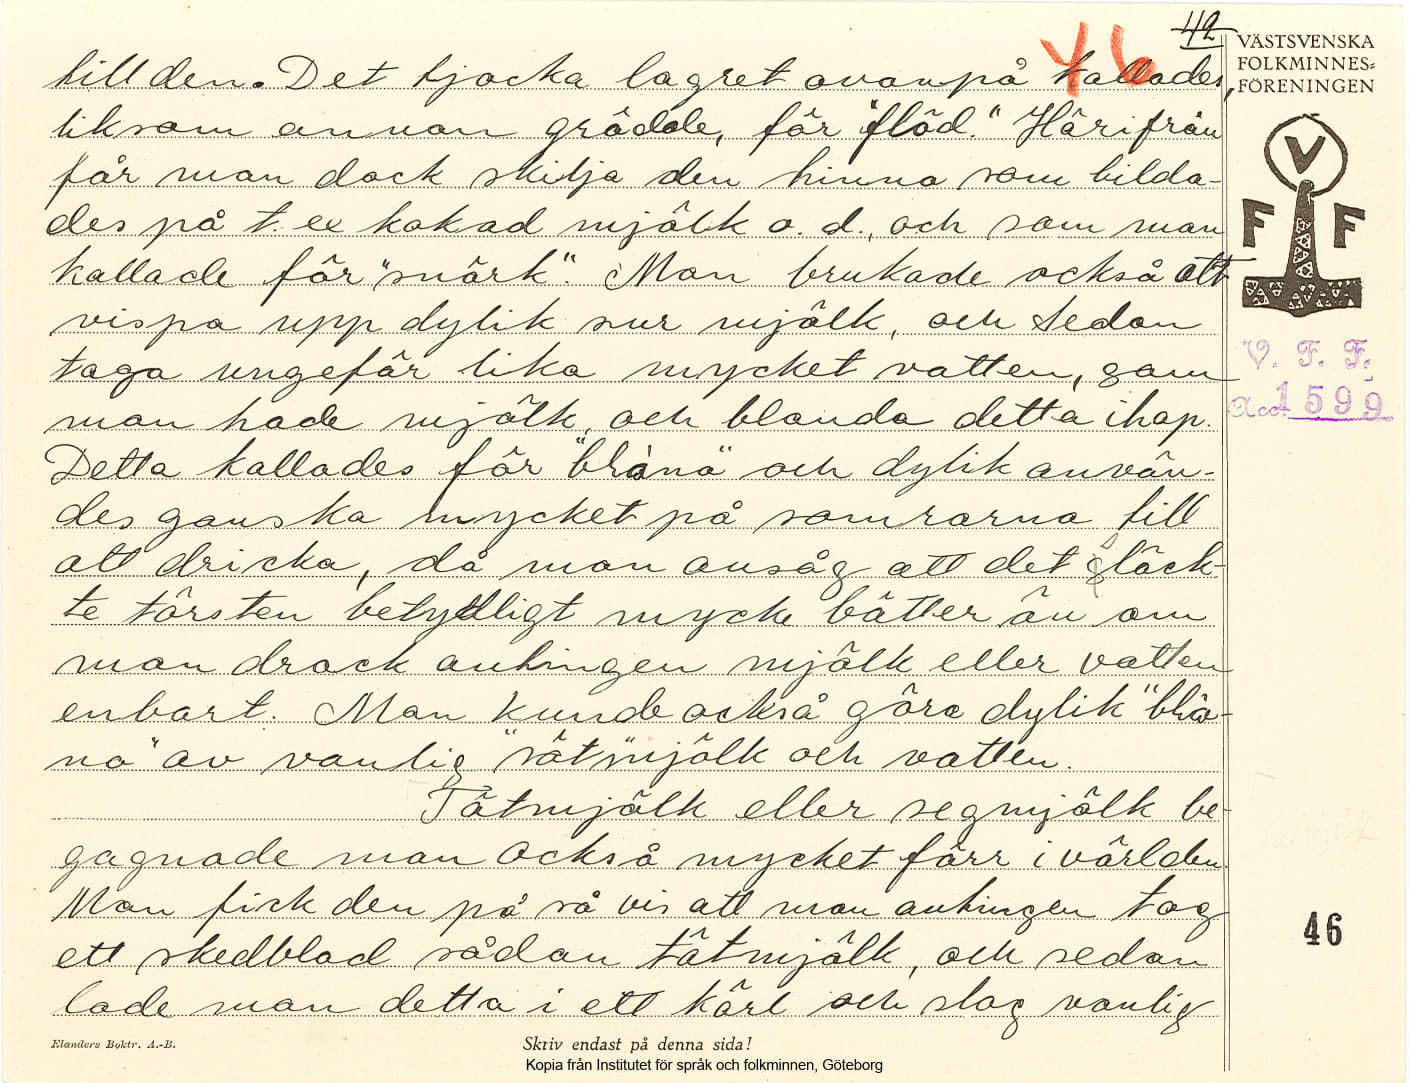 42
46
VÄSTSVENSKA
FOLKMINNES=
FÖRENINGEN
V
F F
V. F. F.
Acc. 1599
till den. Det tjocka lagret ovanpå kallades,
liksom annan grädde, för "flöd." Härifrån
får man dock skilja den hinna som bilda-
des på t. ex kokad mjölk o. d., och som man
kallade för "snörk". Man brukade också att
vispa upp dylik sur mjölk, och sedan
taga ungefär lika mycket vatten, som
man hade mjölk, och blanda detta ihop.
Detta kallades för "blåna" och dylik använ-
des ganska mycket på somrarna till
att dricka, då man ansåg att det släck-
te törsten betydligt mycke bätter än om
man drack antingen mjölk eller vatten
enbart. Man kunde också göra dylik "blå-
na" av vanlig "söt"mjölk och vatten.
Tätmjölk eller segmjölk be-
gagnade man också mycket förr i världen.
Man fick den på så vis att man antingen tog
ett skedblad sådan tätmjölk, och sedan
lade man detta i ett kärl och slog vanlig
Tätmjölk
46
Elanders Boktr. A.-B.
Skriv endast på denna sida!
Kopia från Institutet för språk och folkminnen, Göteborg